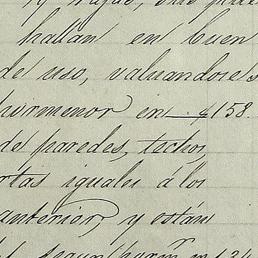 hallan en buen
de uso, valuandores
pormenor en $158.
de paredes, techos
rtas iguales á los
anterior, y están